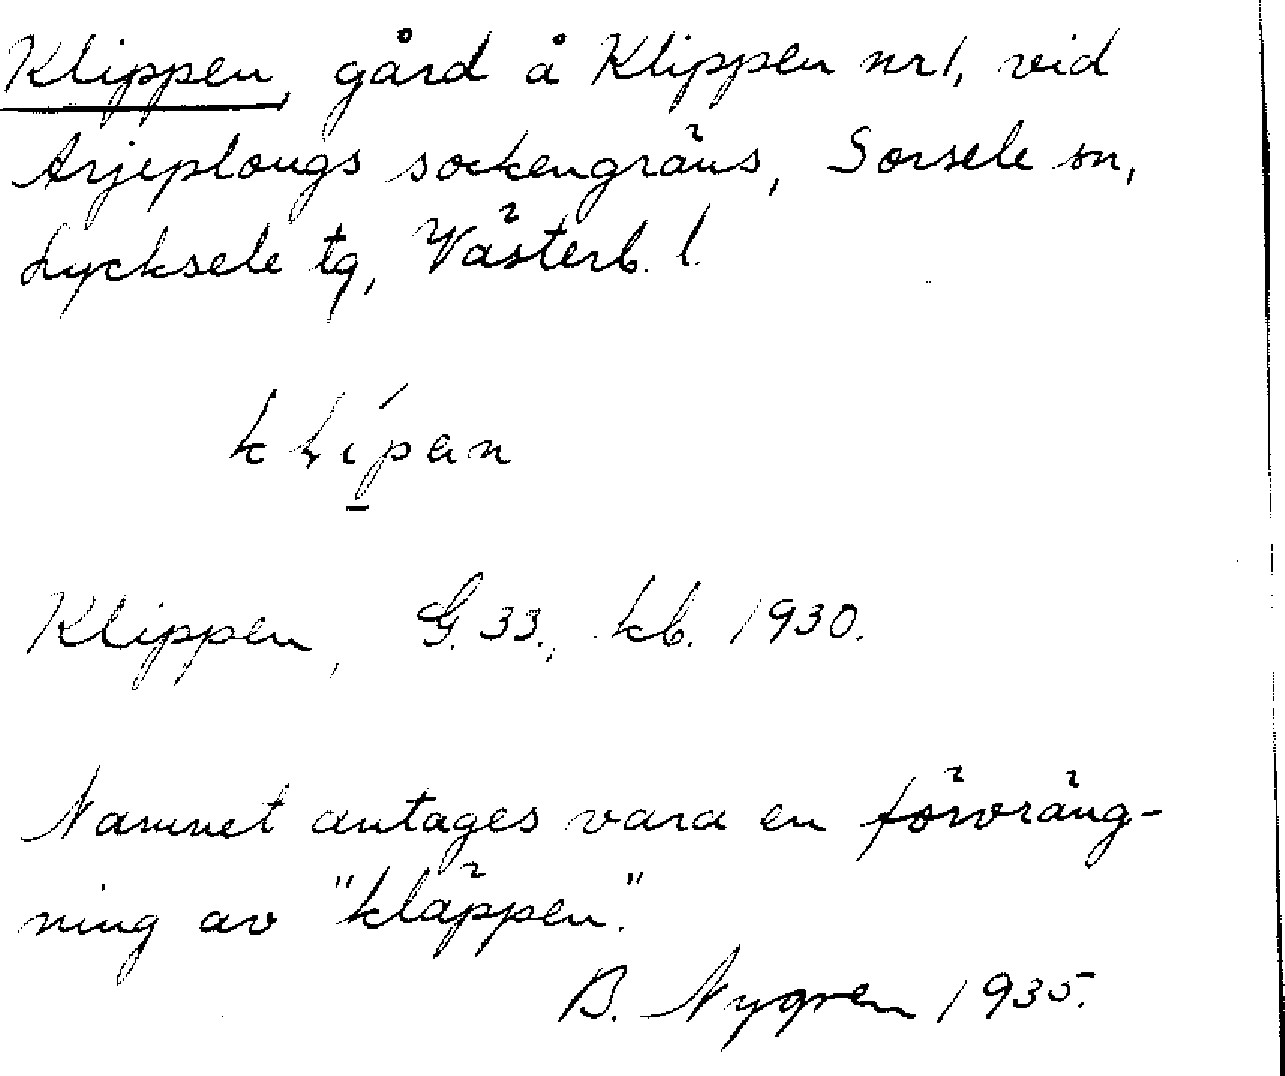 Klippen, gård å Klippen nr 1, vid
Arjeplougs sockengräns, Sorsele sn,
Lycksele tg, Västerb. l.
Klippen, G. 33., kb. 1930.
Namnet antages vara en förvräng-
ning av "kläppen".
B. Nygren 1935.